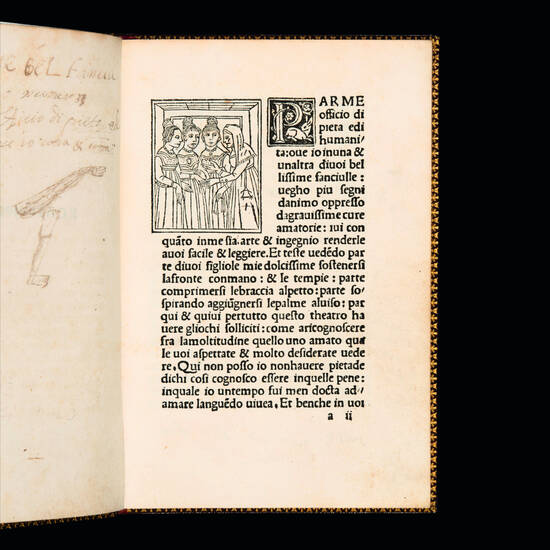 BEL
ARME
officio di
pieta edi
humani/
ta:oue io inuna &
unaltra diuoi bel
lissime fanciulle :
uegho piu segni
danimo oppresso
dagrauissime cure
amatorie : iui con
quãto inme sia.arte & ingegnio renderle
auoi facile & leggiere.Et teste uedẽdo par
te diuoi figliole mie dolcissime sostenersi
lafronte conmano : & le tempie : parte
comprimersi lebraccia alpetto: parte so/
spirando aggiũgnersi lepalme aluiso: par
qui & quiui pertutto questo theatro ha
uere gliochi solliciti: come aricognoscere
fra lamoltitudine quello uno amato qua
le uoi aspettate & molto desiderate uede
re, Qui non posso io nonhauere pietade
dichi cosi cognosco essere inquelle pene:
inquale io untempo fui men docta ad/
amare languẽdo uiuea, Et benche in uoi
a ii